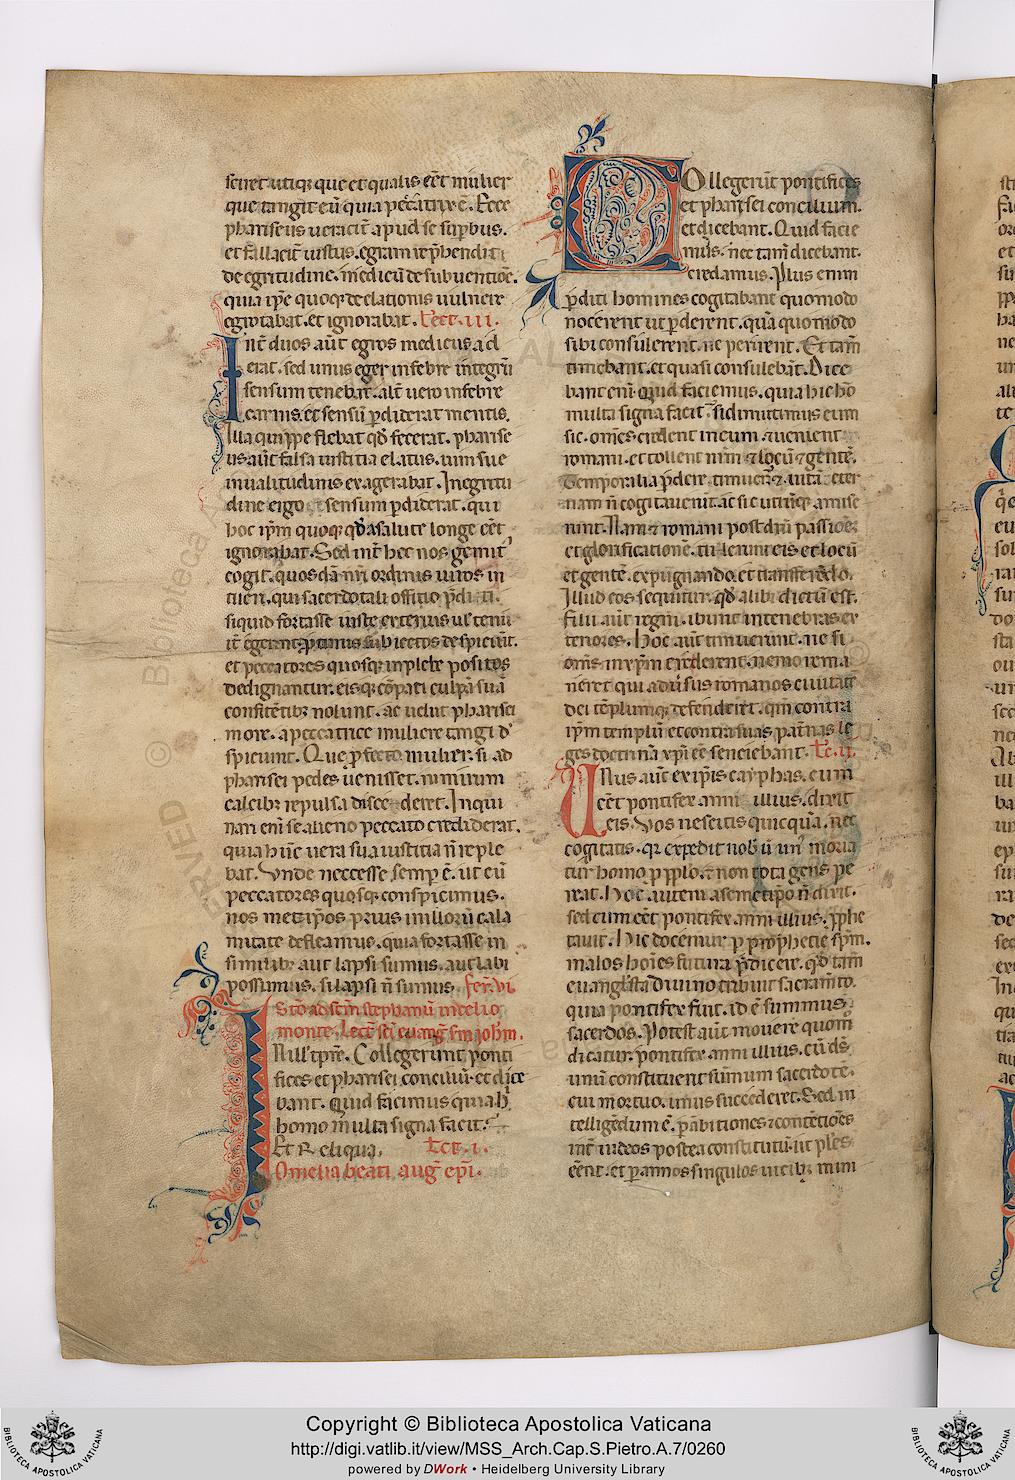 sciret utiqꝫ que et qualis eēt mulier
que tangit eū quia peccatrix ē. Ecce
phariseus ueraciť apud se supbus.
et fallaciť iustus. egram rephendit
de egritudine. medicū de subuentiōe.
quia ipse quoqꝫ de elationis uulnere
egrotabat. et ignorabat. Lect. III.
Int̄ duos aūt egros medicus ad
erat. sed unus eger in febre integrū
sensum tenebat. alt̄ uero in febre
carnis. et sensū pdiderat mentis.
Illa quippe flebat qđ fecerat. pharise
us aūt falsa iustitia elatus. uim sue
inualitudinis exagerabat. In egritu
dine ergo et sensum pdiderat. qui
hoc ipm quoqꝫ qđ a salute longe eēt
ignorabat. Sed int̄ hec nos gemit
cogit. quosdā nri ordinis uiros in
tueri. qui sacerdotali offitio pditi.
siquid fortasse iuste exterius uel tenui
ť egerint. ptinus subiectos despiciunt.
et peccatores quosqꝫ in plebe positos
dedignantur. eisqꝫ cōpati culpā suā
confitētibꝫ nolunt. ac uelut pharisei
more. a peccatrice muliere tangi đ
spiciunt. Que pfecto mulier. si ad
pharisei pedes uenisset. nimirum
calcibꝫ repulsa discederet. Inqui
nari eni se alieno peccato crediderat.
quia hūc uera sua iustitia n̄ reple
bat. Unde neccesse semp ē. ut cū
peccatores quosqꝫ conspicimus.
nos met ipsos prius in illorū cala
mitate defleamus. quia fortasse in
similibꝫ aut lapsi sumus. aut labi
possumus. si lapsi n̄ sumus. fer. vi.
Stō ad scm stephanū in celio
monte. Lect sci euang scm johm.
In ill tpre. Collegerunt ponti
fices et pharisei conciliū. et dice
bant. Quid facimus quia h̄
homo multa signa facit.
Et Reliqua. Lect. i.
Omelia beati aug epi.
Collegerūt pontifices
et pharisei concilium.
et dicebant. Quid facie
mus. nec tam̄ dicebant.
credamus. Plus enim
pditi homines cogitabant quomodo
nocerent ut pderent. quā quomodo
sibi consulerent. ne perirent. Et tam̄
timebant. et quasi consulebāt. Dice
bant eni. Quid faciemus. quia hic hō
multa signa facit. si dimittimus eum
sic. omēs credent in eum. ⁊ uenient
romani. et tollent nrm ⁊ locū ⁊ gentē.
Temporalia pdere timuerūt. ⁊ uitā eter
nam n̄ cogitauerūt. ac sic utrūqꝫ amise
runt. Nam ⁊ romani post dni passionē
et glorificationē. tulerunt eis et locū
et gentē. expugnando. et transferēdo.
Illud eos sequitur. qđ alibi dictū est.
Filii aūt regni. ibunt in tenebras ex
teriores. Hoc aūt timuerunt. ne si
om̄s in xpm crederent. nemo rema
neret qui aduersus romanos ciuitatē
dei tēplumqꝫ defenderet. qm̄ contra
ipm templū et contra suas patnas le
ges doctrinā xpi eē senciebant. Lc. ii.
Unus aūt ex ipsis cayphas. cum
eēt pontifex anni illius. dixit
eis. Vos nescitis quicquā. nec
cogitatis. qꝫ expedit nob̄ ū un moria
tur homo p pplo. ⁊ non tota gens pe
reat. Hoc autem a semetipo n̄ dixit.
sed cum eēt pontifex anni illius. pphe
tauit. Hic docemur p prophetie spm.
malos hoīes futura pdicere. qđ tam̄
euanglista diuino tribuit sacramto.
quia pontifex fuit. id ē summus
sacerdos. Potest aūt mouere quom̄
dicatur pontifex anni illius. cū ds
unū constituerit sūmum sacerdotē.
cui mortuo. unus succederet. Sed in
telligēdum ē. p ambitiones ⁊ contētiōes
int̄ iudeos postea constitutū. ut plēs
eēnt. et p annos singulos uicibꝫ mini
Copyright © Biblioteca Apostolica Vaticana
http://digi.vatlib.it/view/MSS_Arch.Cap.S.Pietro.A.7/0260
powered by DWork • Heidelberg University Library
BIBLIOTECA APOSTOLICA VATICANA
BIBLIOTECA APOSTOLICA VATICANA